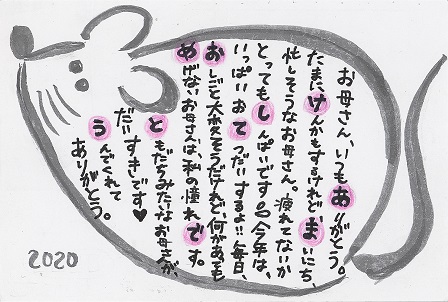 お母さん、いつもありがとう。
たまに、けんかもするけれど、まいにち、
忙しそうなお母さん。疲れてないか
とってもしんぱいです。今年は、
いっぱいおてつだいするよ!!毎日、
おしごと大変そうだけれど、何があっても
めげないお母さんは、私の憧れです。
ともだちみたいなお母さんが、
だいすきです♥
うんでくれて
ありがとう。
2020